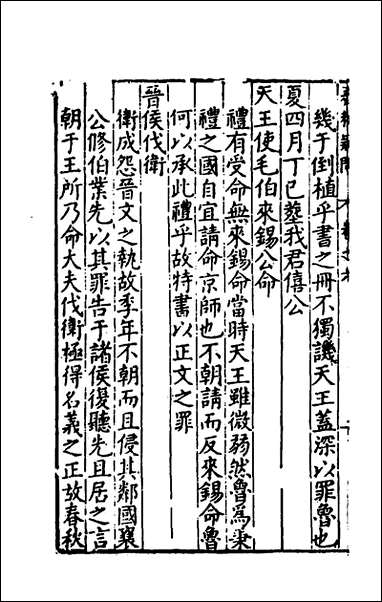 幾于倒植乎書之冊不獨譏天王蓋深以罪魯也
夏四月丁巳塟我君僖公
天王使毛伯來錫公命
禮有受命無來錫命當時天王雖微弱然魯爲秉
禮之國自宜請命京師也不朝請而反來錫命魯
何以承此禮乎故特書以正文之罪
晉侯伐衛
衛成怨晉文之執故季年不朝而且侵其鄰國襄
公修伯業先以其罪告于諸侯復聽先且居之言
朝于王所乃命大夫伐衛極得名義之正故春秋